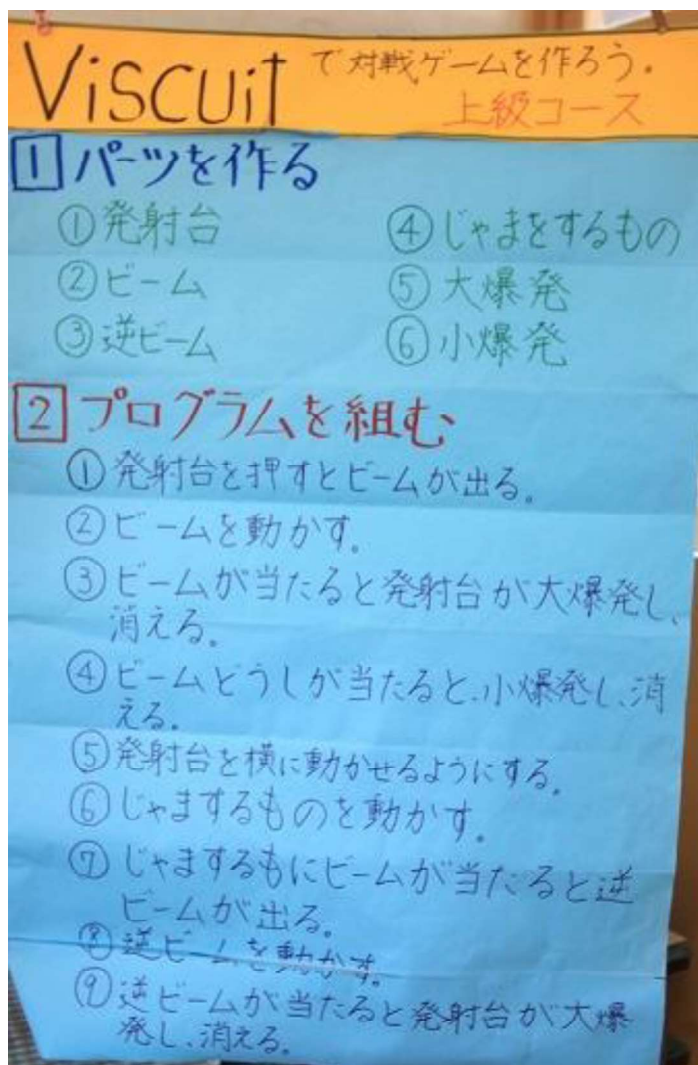 Viscuit で対戦ゲームを作ろう.
上級コース
1 パーツを作る
①発射台
②ビーム
③逆ビーム
④じゃまをするもの
⑤大爆発
⑥小爆発
2 プログラムを組む
①発射台を押すとビームが出る。
②ビームを動かす。
③ビームが当たると発射台が大爆発し、
消える。
④ビームどうしが当たると、小爆発し、消
える。
⑤発射台を横に動かせるようにする。
⑥じゃまするものを動かす。
⑦じゃまするもにビームが当たると逆
ビームが出る。
⑧逆ビームを動かす。
⑨逆ビームが当たると発射台が大爆
発し、消える。